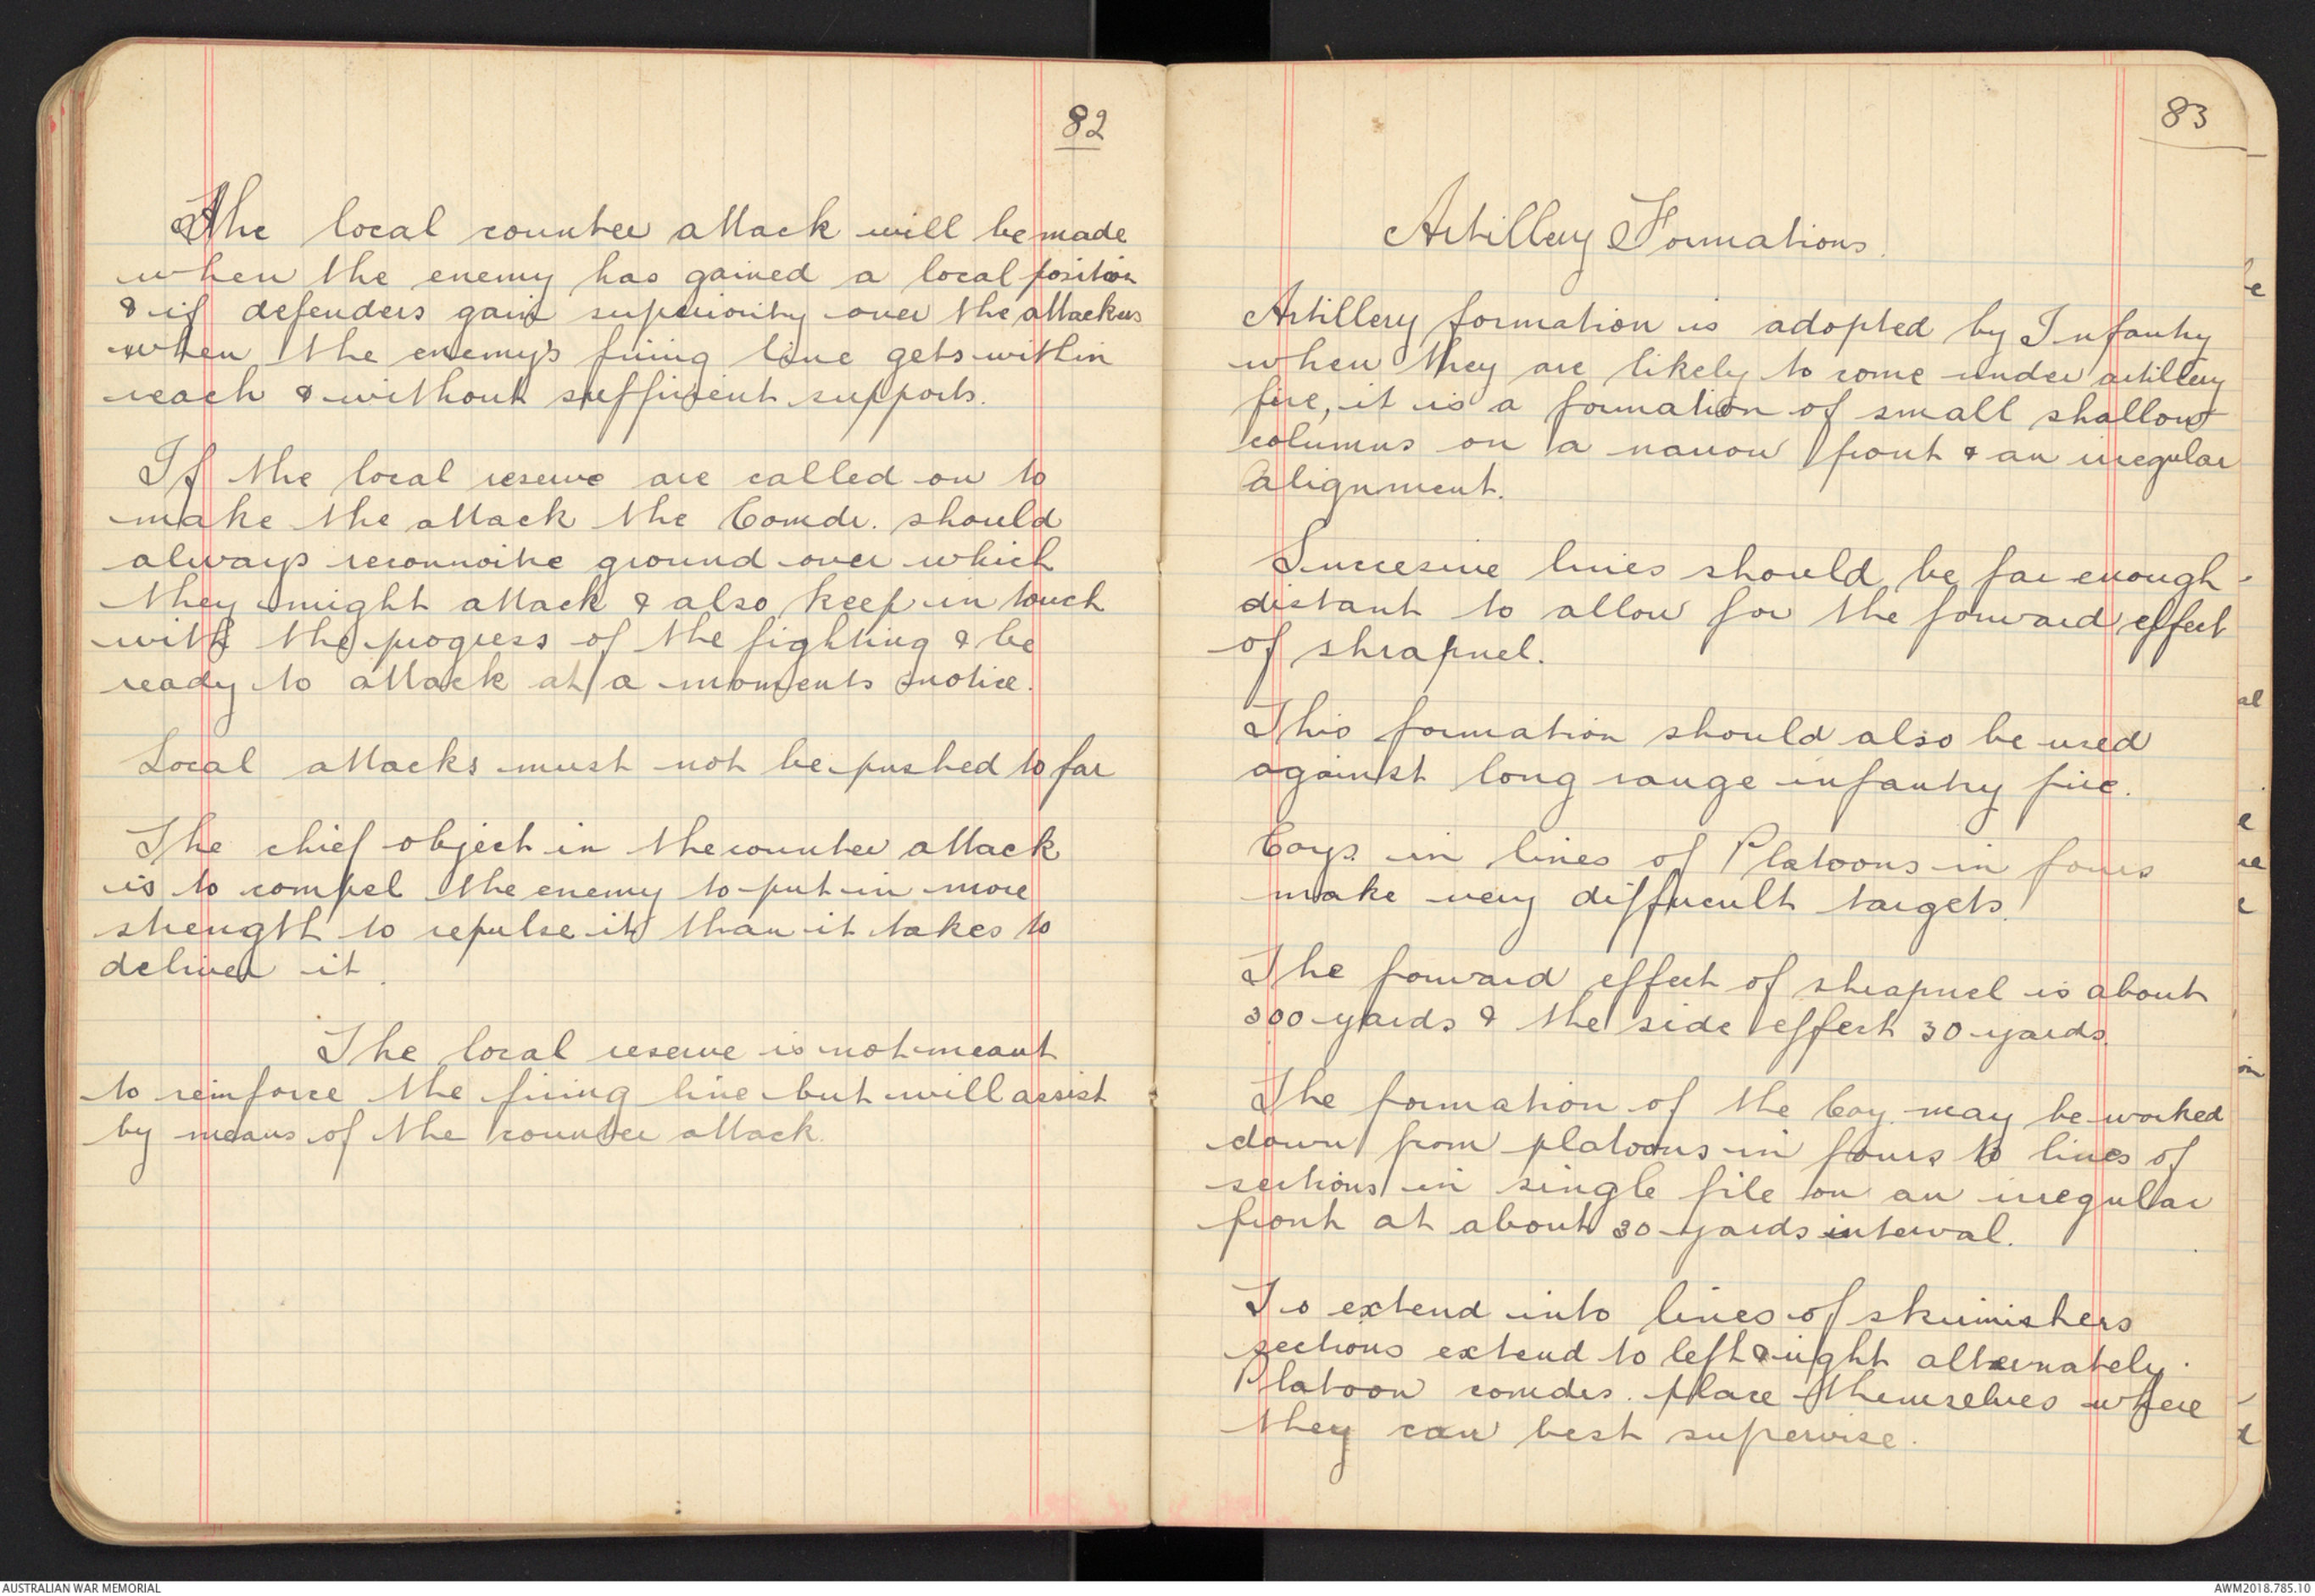 82
The local counter attack will be made
when the enemy has gained a local position
& if defenders gain superiority over the attackers
when the enemy's firing line gets within
reach & without sufficient supports.
If the local reserve are called on to
make the attack the Comdr. should
always reconnoitre ground over which
they might attack & also keep in touch
with the progress of the fighting & be
ready to attack at a moments notice.
Local attacks must not be pushed to far
The chief object in the counter attack
is to compel the enemy to put in more
strength to repulse it than it takes to
deliver it.
The local reserve is not meant
to reinforce the firing line but will assist
by means of the counter attack.
83
Artillery Formations.
Artillery formation is adopted by Infantry
when they are likely to come under artillery
fire, it is a formation of small shallow
columns on a narrow front & an irregular
alignment.
Succesive lines should be far enough
distant to allow for the forward effect
of shrapnel.
This formation should also be used
against long range infantry fire.
Coys. in lines of Platoons in fours
make very difficult targets.
The forward effect of shrapnel is about
300 yards & the side effect 30 yards.
The formation of the Coy. may be worked
down from platoons in fours to lines of
sections in single file on an irregular
front at about 30 yards interval.
To extend into lines of skirmishers
sections extend to left & right alternately.
Platoon comdrs. place themselves where
they can best supervise.
AUSTRALIAN WAR MEMORIAL
AWM2018.785.10